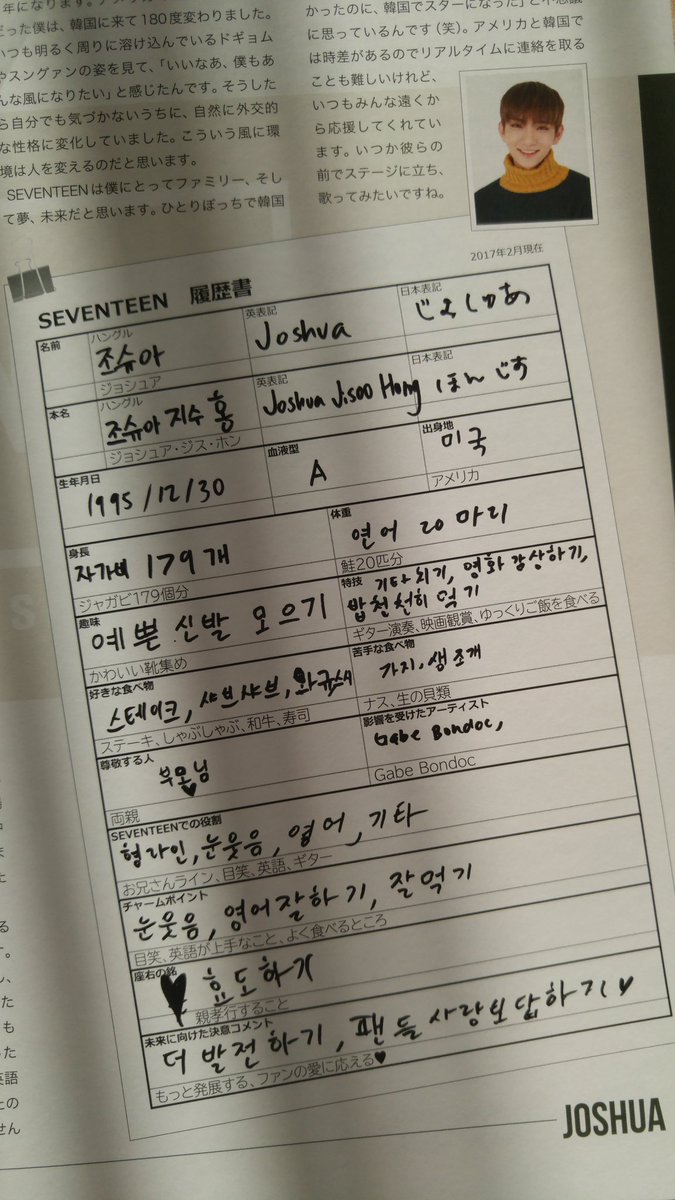 だった僕は、韓国に来て180度変わりました。
いつも明るく周りに溶け込んでいるドギョム
やスングァンの姿を見て、「いいなあ、僕もあ
んな風になりたい」と感じたんです。そうした
ら自分でも気づかないうちに、自然に外交的
な性格に変化していました。こういう風に環
境は人を変えるのだと思います。
SEVENTEENは僕にとってファミリー、そし
て夢、未来だと思います。ひとりぼっちで韓国
かったのに、韓国でスターになった」と不思議
に思っているんです(笑)。アメリカと韓国で
は時差があるのでリアルタイムに連絡を取る
ことも難しいけれど、
いつもみんな遠くか
ら応援してくれてい
ます。いつか彼らの
前でステージに立ち、
歌ってみたいですね。
2017年2月現在
SEVENTEEN 履歴書
名前
ハングル
조슈아
ジョシュア
英表記
Joshua
日本表記
じょしゅあ
本名
ハングル
조슈아 지수 홍
ジョシュア・ジス・ホン
英表記
Joshua Jisoo Hong
日本表記
ほん じす
生年月日
1995/12/30
血液型
A
出身地
미국
アメリカ
身長
자가비 179개
ジャガビ179個分
体重
연어 20마리
鮭20匹分
趣味
예쁜 신발 모으기
かわいい靴集め
特技
기타치기, 영화감상하기,
밥 천천히 먹기
ギター演奏、映画観賞、ゆっくりご飯を食べる
好きな食べ物
스테이크, 샤브샤브,
ステーキ、しゃぶしゃぶ、和牛、寿司
苦手な食べ物
가지, 생조개
ナス、生の貝類
尊敬する人
부모님♥
両親
影響を受けたアーティスト
Gabe Bondoc,
Gabe Bondoc
SEVENTEENでの役割
형라인, 눈웃음, 영어, 기타
お兄さんライン、目笑、英語、ギター
チャームポイント
눈웃음, 영어잘하기, 잘먹기
目笑、英語が上手なこと、よく食べるところ
座右の銘
♥ 효도하기
親孝行すること
未来に向けた決意コメント
더 발전하기, 팬들 사랑보답하기♥
もっと発展する、ファンの愛に応える♥
JOSHUA